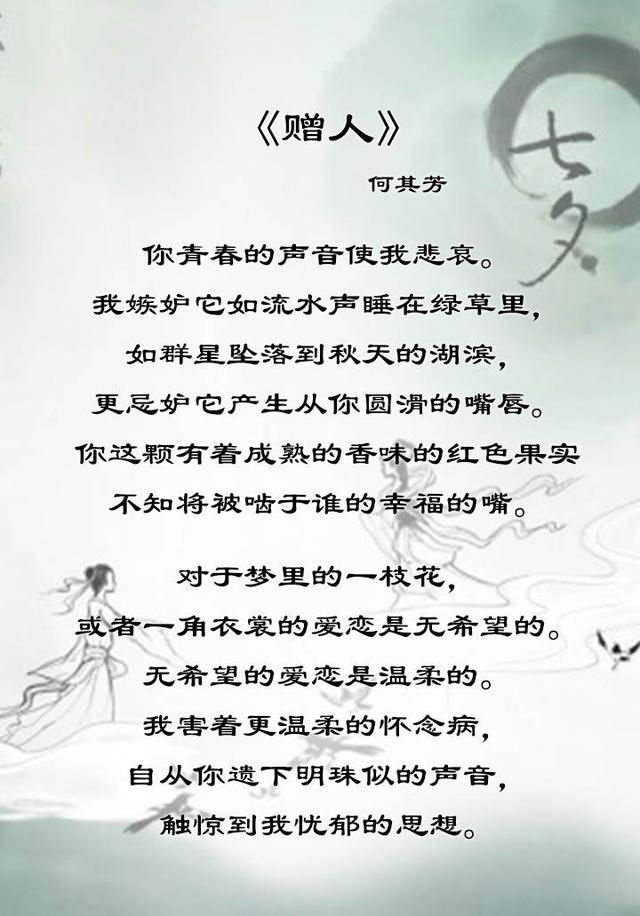 《赠人》
何其芳
七夕
你青春的声音使我悲哀。
我嫉妒它如流水声睡在绿草里，
如群星坠落到秋天的湖滨，
更忌妒它产生从你圆滑的嘴唇。
你这颗有着成熟的香味的红色果实
不知将被啮于谁的幸福的嘴。
对于梦里的一枝花，
或者一角衣裳的爱恋是无希望的。
无希望的爱恋是温柔的。
我害着更温柔的怀念病，
自从你遗下明珠似的声音，
触惊到我忧郁的思想。